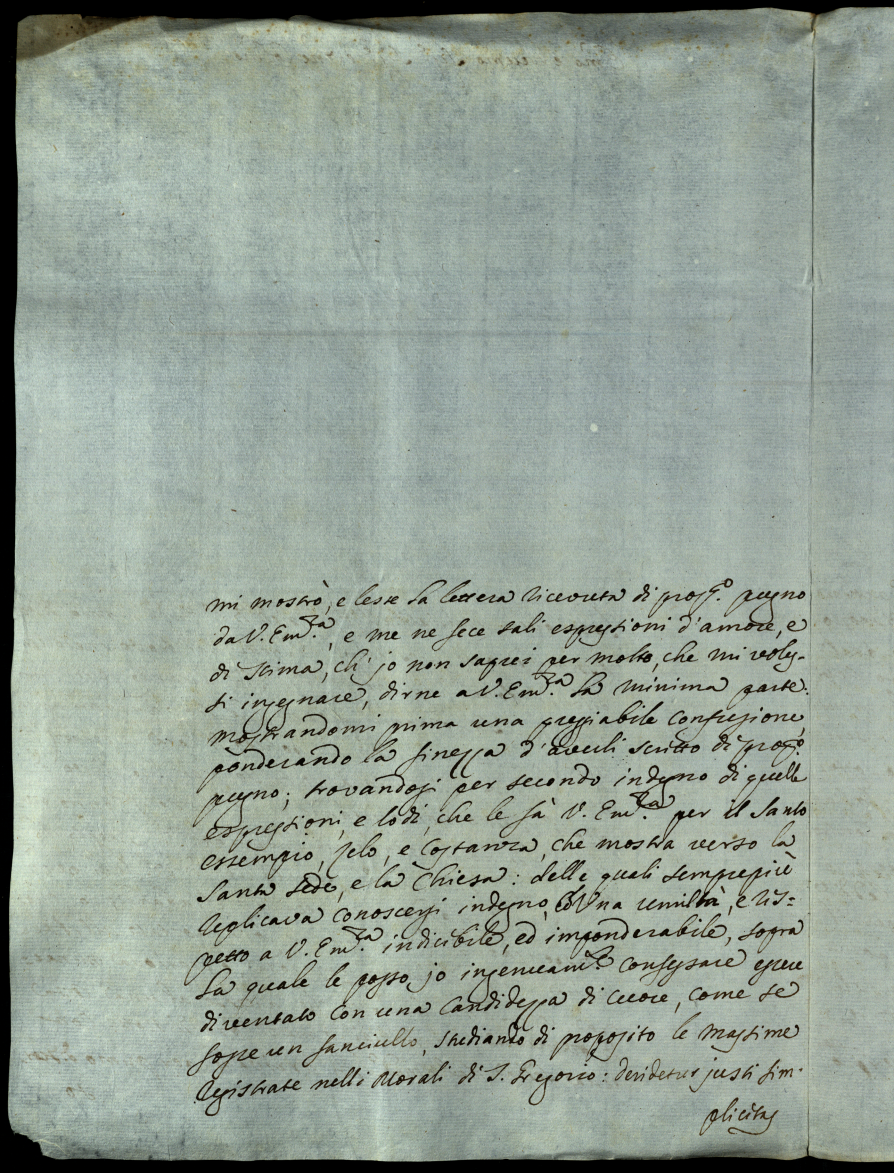 mi mostrò, e lesse la lettera ricevuta di prop.º pugno
da V. Em.za, e me ne fece tali espressioni d'amore, e
di stima, ch'jo non saprei per molto, che mi voles-
si ingegnare, dirne a V. Em.za la minima parte.
mostrandomi prima una pregiabile confusione,
ponderando la finezza d'averli scritto di prop.º
pugno; trovandosi per secondo indegno di quelle
espressioni, e lodi, che le fà V. Em.za per il Santo
essempio, zelo, e Costanza, che mostra verso la
Santa Sede, e la Chiesa: delle quali semprepiù
replicava conoscersi indegno, con una umiltà, e ris=
petto a V. Em.za indicibile, ed imponderabile, sopra
la quale le posso jo ingenuam.te confessare essere
diventato con una Candidezza di cuore, come se
fosse un fanciullo, studiando di proposito le massime
registrate nelli Morali di S. Gregorio: deridetur justi sim-
plicitas